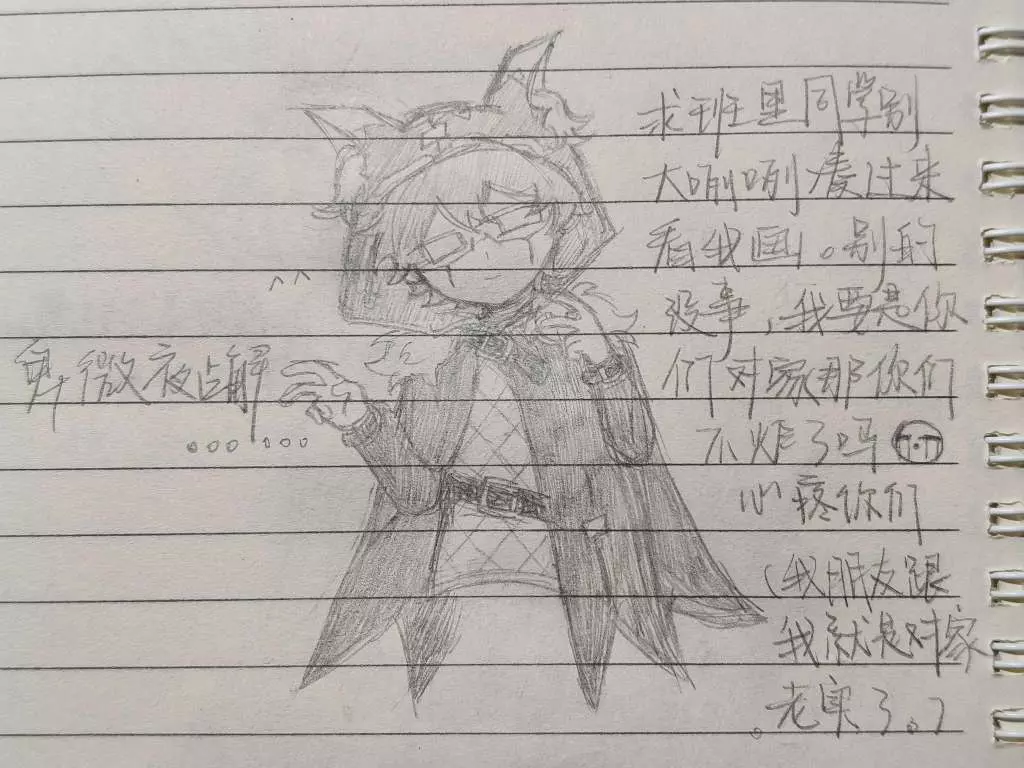 求班里同学别
大咧咧看过来
看我画。别的
没事，我要是你
们对家那你们
不炸了吗
心疼你们
（我朋友跟
我就是对家
。老实了。）
^^
卑微夜占解
。。。。。。